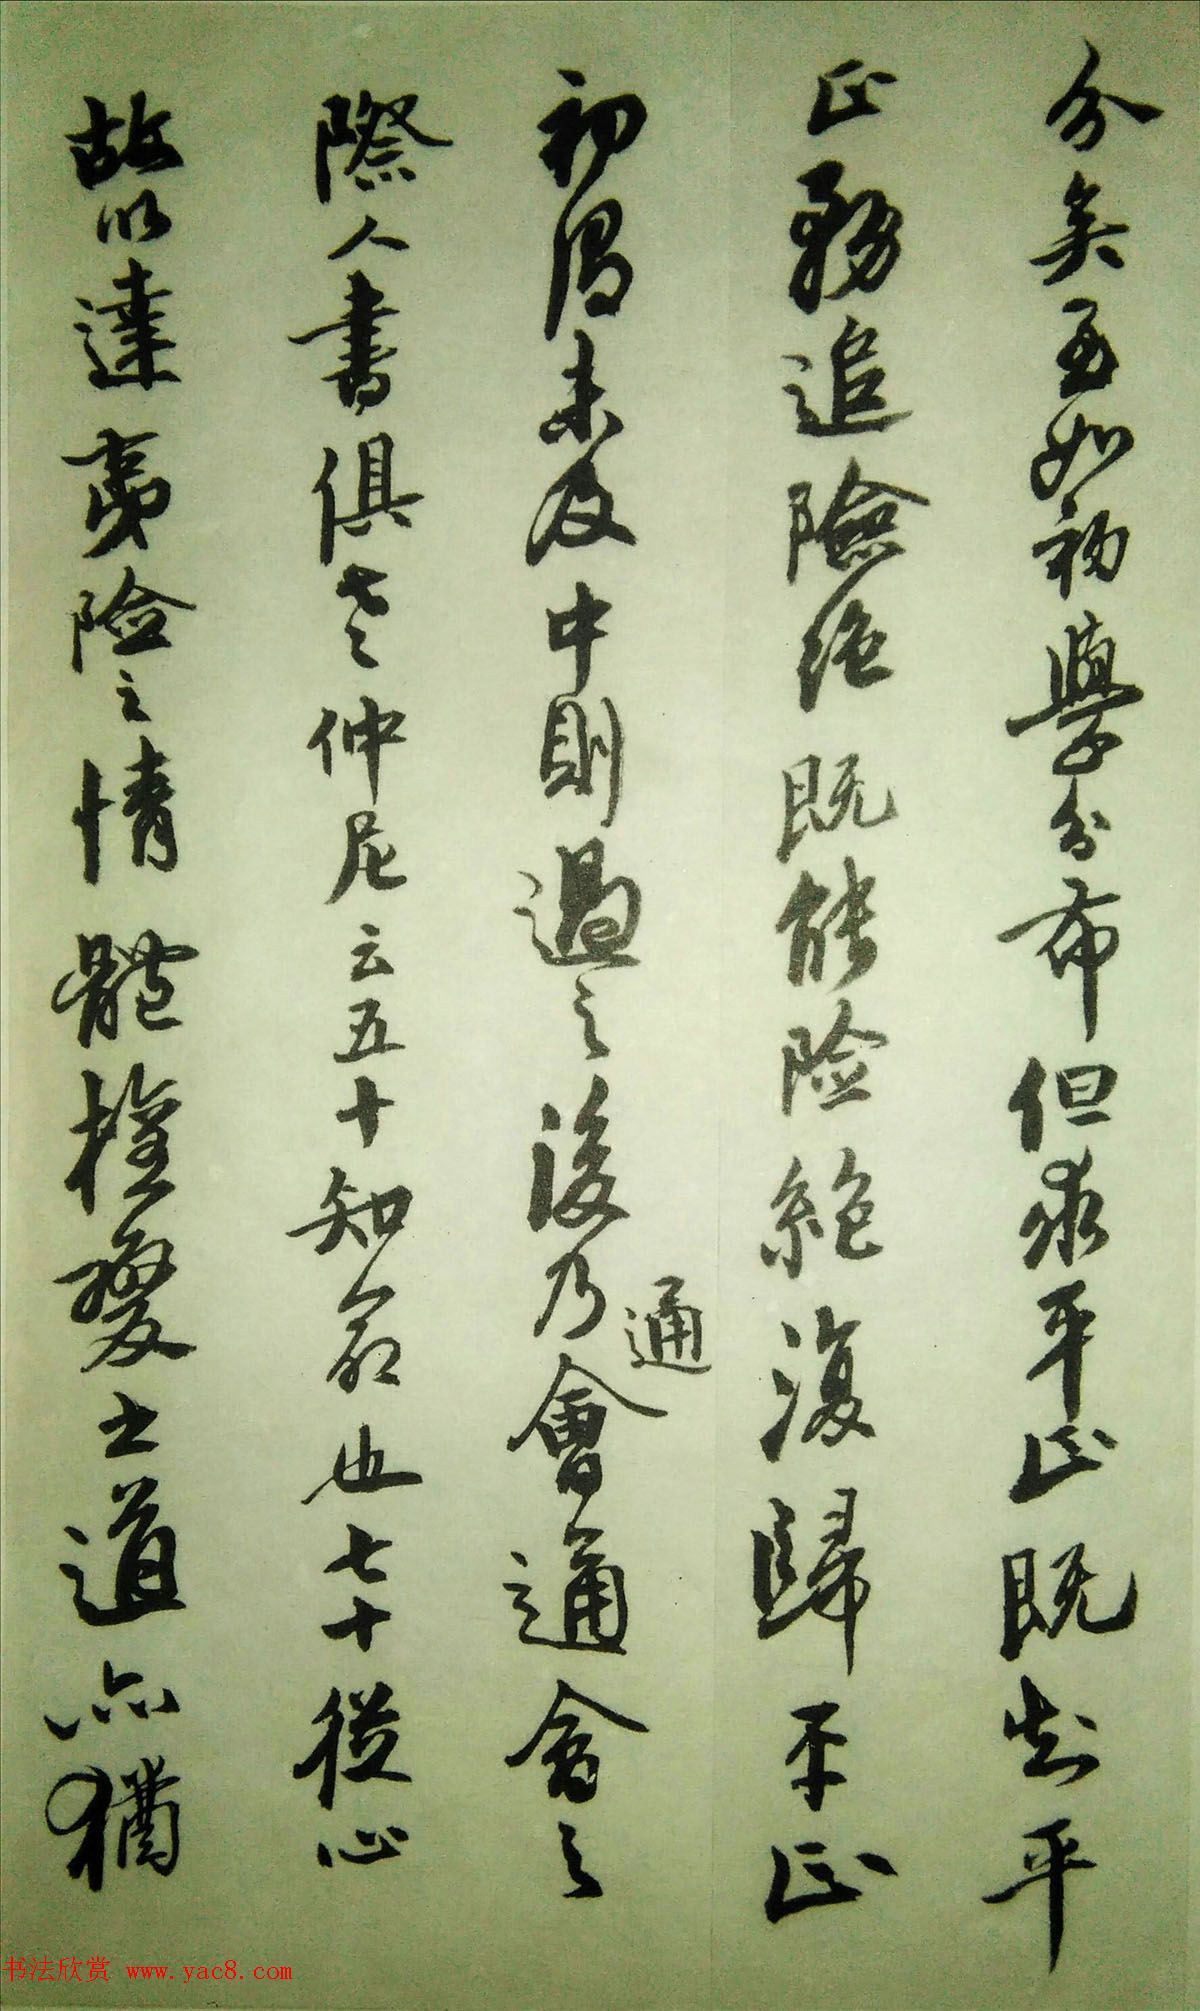 分矣至如初學分布但求平正既知平
正務追險絕既能险絕復歸平正
初謂未及中則過之後乃通會通會之
際人書俱老仲尼云五十知命也七十從心
故以達夷險之情體權變之道亦猶
通
书法欣赏 www.yac8.com